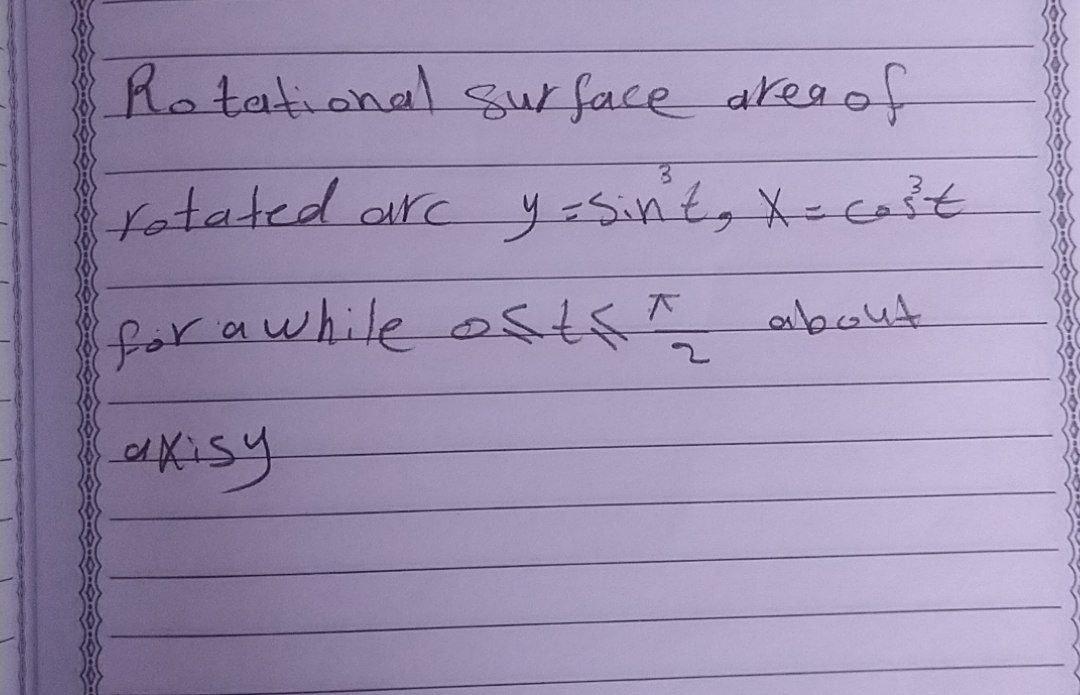 Rotational surface area of
rotated arc y = sin³t, x = cos³t
for a while 0 ≤ t ≤ π/2 about
axis y